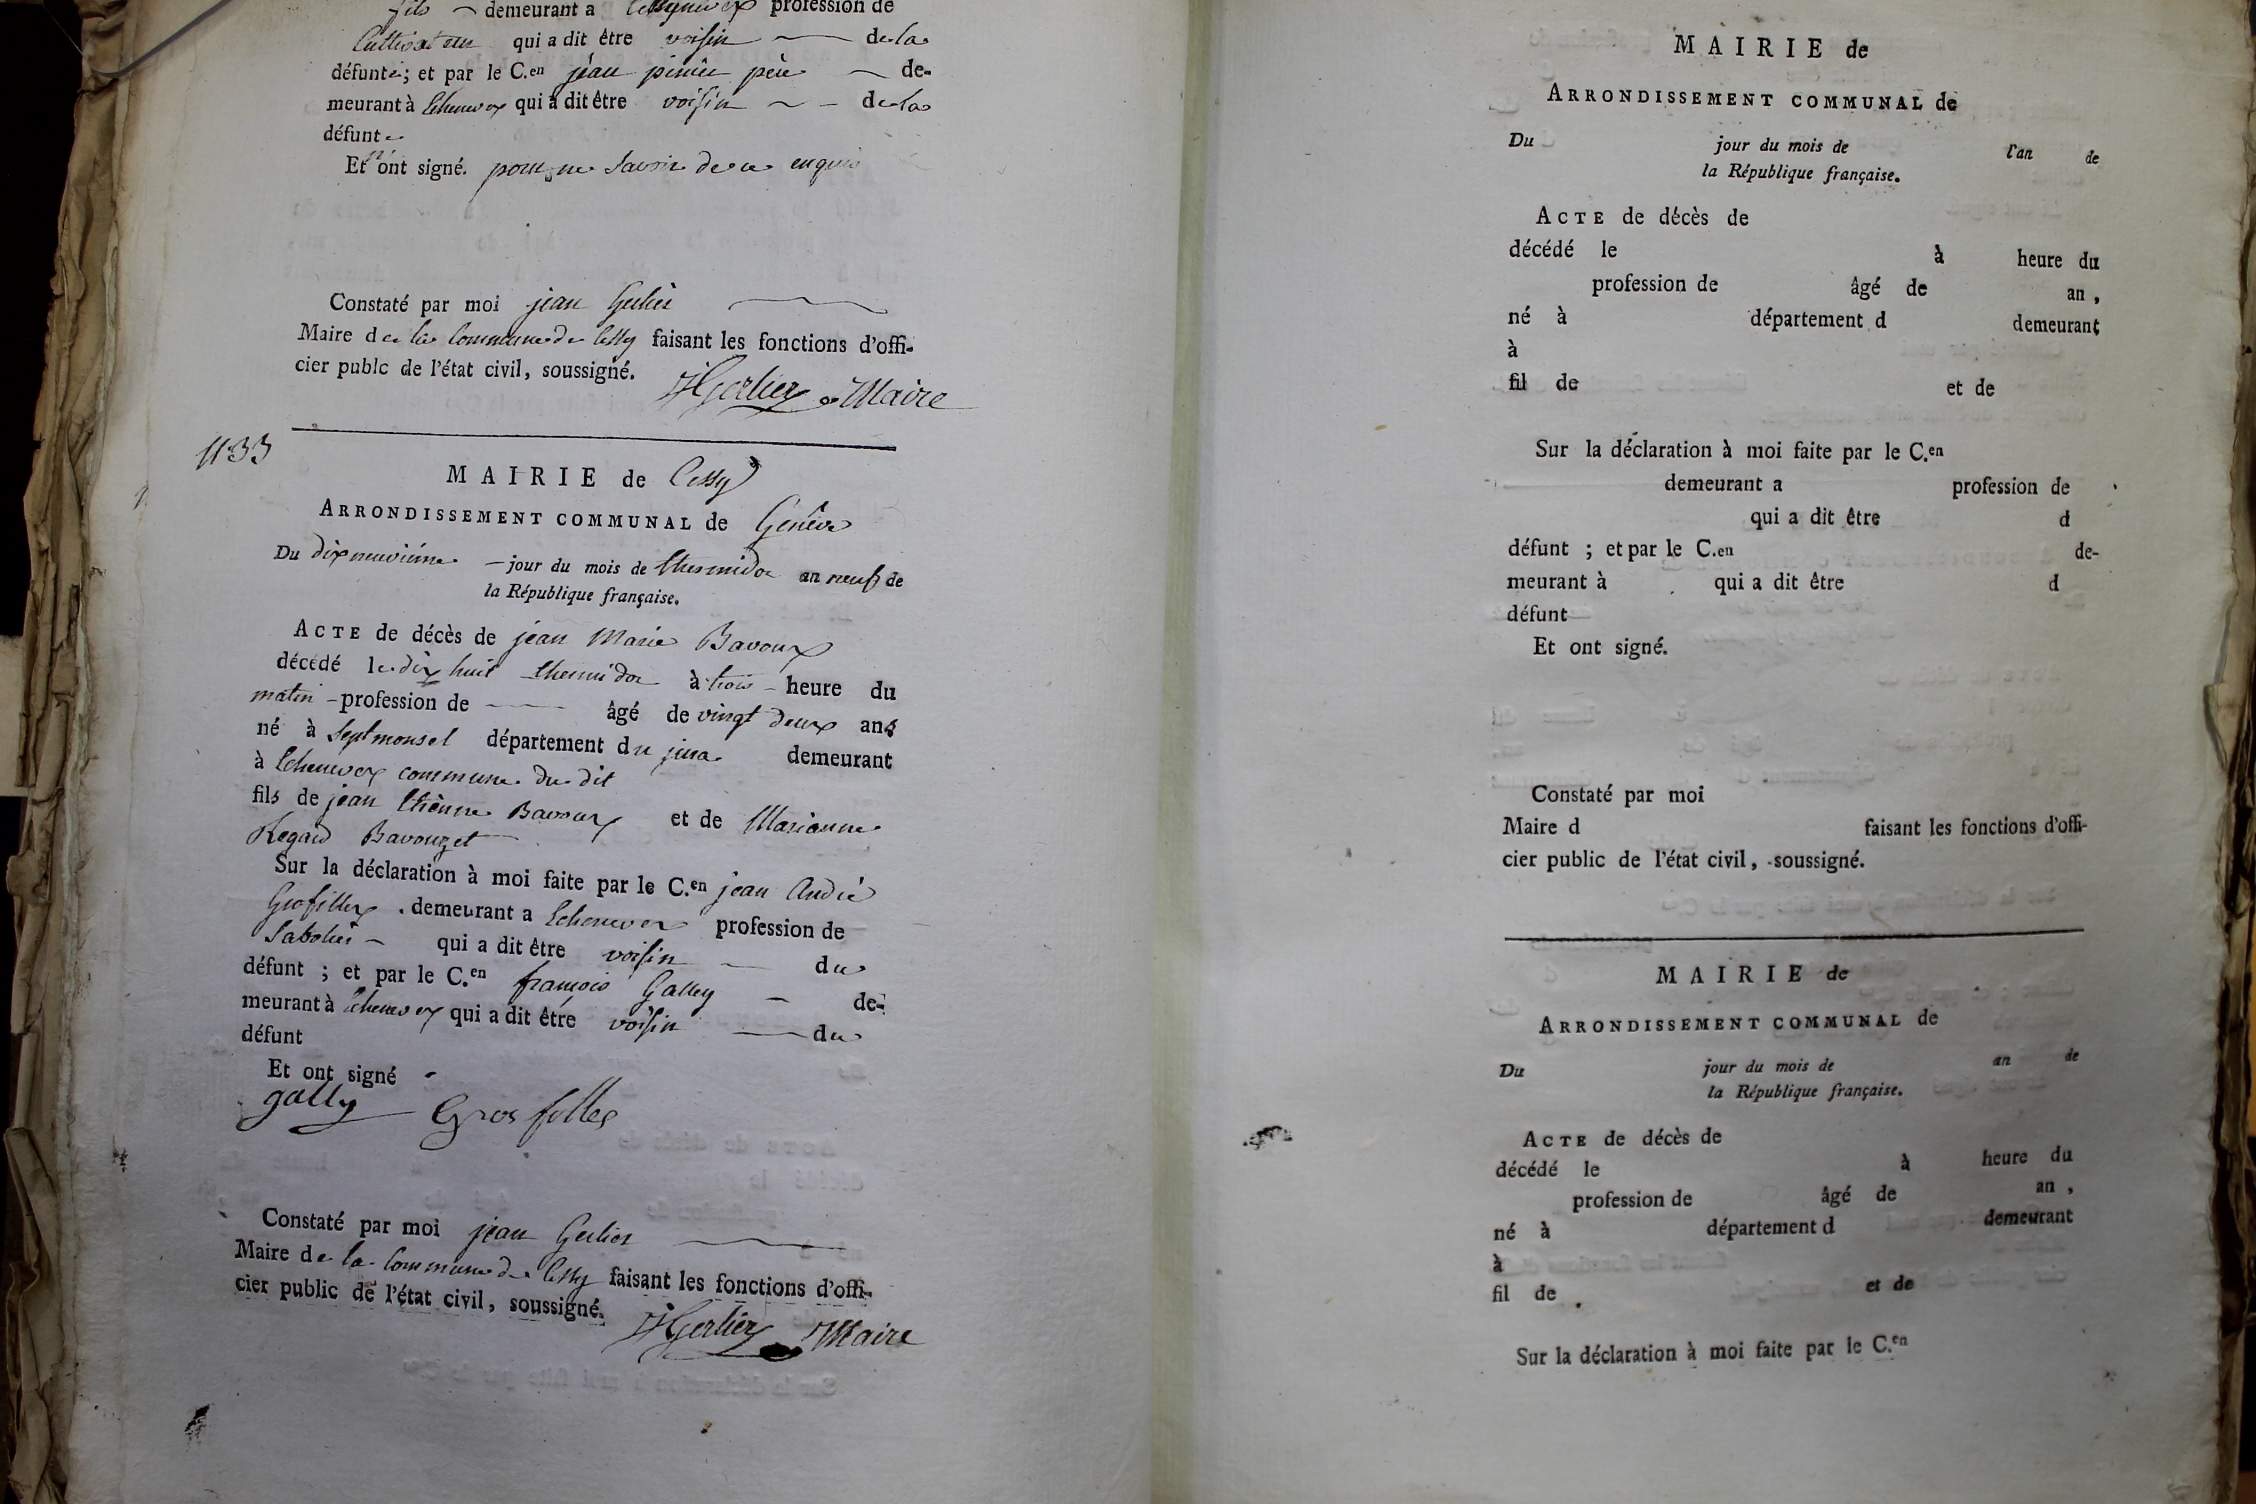 fils demeurant a profession de
Cultivateur qui a dit être voisin de la
défunte ; et par le C.en jean père de-
meurant à Echenevex qui a dit être voisin de la
défunte
Et n'ont signé. pour ne savoir de ce enquis
Constaté par moi jean Gerlier
Maire de la Commune de Cessy faisant les fonctions d'offi-
cier publc de l'état civil, soussigné.
JGerlier Maire
1133
MAIRIE de Cessy
ARRONDISSEMENT COMMUNAL de Genève
Du dix neuvième jour du mois de thermidor an neuf de
la République française.
ACTE de décès de jean Marie Bavoux
décédé le dix huit thermidor à trois heure du
matin profession de âgé de vingt deux ans
né à Septmonsel département du jura demeurant
à Echenevex commune du dit
fils de jean Etienne Bavoux et de Marianne
Regard Bavouzet
Sur la déclaration à moi faite par le C.en jean André
Grofillex demeurant a Echenevex profession de
Sabotier qui a dit être voisin du
défunt ; et par le C.en françois Gally de-
meurant à Echenevex qui a dit être voisin du
défunt
Et ont signé
gally Gros fillex
Constaté par moi jean Gerlier
Maire de la Commune de Cessy faisant les fonctions d'offi-
cier public de l'état civil, soussigné.
JGerlier Maire
MAIRIE de
ARRONDISSEMENT COMMUNAL de
Du jour du mois de l'an de
la République française.
ACTE de décès de
décédé le à heure du
profession de âgé de an ,
né à département d demeurant
à
fil de et de
Sur la déclaration à moi faite par le C.en
demeurant a profession de
qui a dit être d
défunt ; et par le C.en de-
meurant à qui a dit être d
défunt
Et ont signé.
Constaté par moi
Maire d faisant les fonctions d'offi-
cier public de l'état civil, soussigné.
MAIRIE de
ARRONDISSEMENT COMMUNAL de
Du jour du mois de an de
la République française.
ACTE de décès de
décédé le à heure du
profession de âgé de an ,
né à département d demeurant
à
fil de et de
Sur la déclaration à moi faite par le C.en